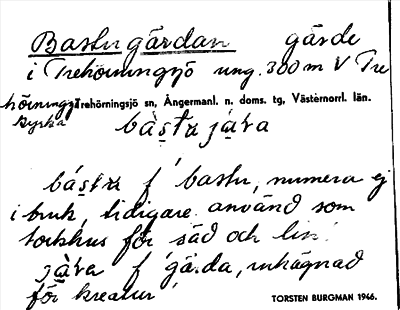 Bastugärdan gärde
i Trehörningsjö ung. 300 m V Tre
hörningsjö Trehörningsjö sn, Ångermanl. n. doms. tg, Västernorrl. län.
kyrka
bàstɷ jàra
básta f bastu, numera ej
i bruk, tidigare använd som
torkhus för säd och lin.
jàra f gärda, inhägnad
för kreatur
TORSTEN BURGMAN 1946.